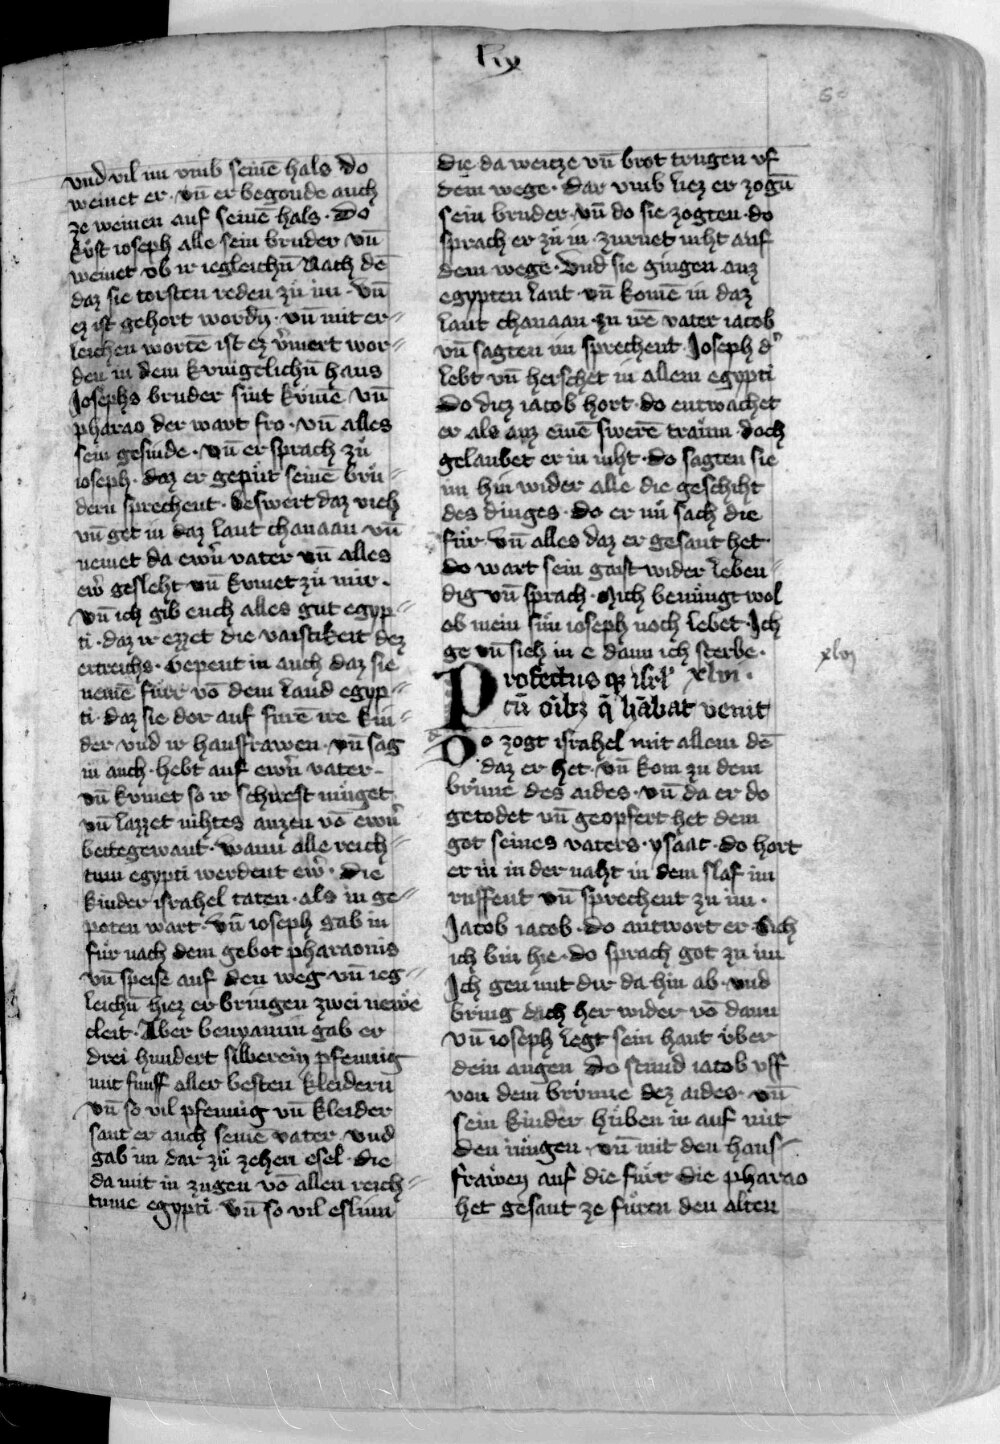 vnd vil im vmb seinē hals do
weinet er · vn̄ er begonde auch
ze weinen auf seinē hals · Do
kust ioseph alle sein bruder vn̄
weinet vb ir iegleichn̄ Nach dē
daz sie torsten reden zů im · vn̄
ez ist gehort wordn̄ · vn̄ mit er⸗
leichen wortē ist ez v̓mert wor⸗
den in dem kvnigelichn̄ haus
Josephs bruder sint kvmē vn̄
pharao der wart fro · vn̄ alles
sein gesinde · vn̄ er sprach zů
ioseph · daz er gepůt seinē brů⸗
dern sprechent · Beswert daz vich
vn̄ get in daz lant chanaan vn̄
nemet da ewrn̄ vater vn̄ alles
ewr̓ gesleht vn̄ kvmet zů mir ·
vn̄ ich gib euch alles gut egyp⸗
ti · daz ir ezzet die vaistikeit dez
ertreichs · Gepeut in auch daz sie
nemē fůrr vō dem land egyp⸗
ti · daz sie dor auf furē ire kin⸗
der vnd ir hausfrawen · vn̄ sag
in auch · hebt auf ewrn̄ vater ·
vn̄ kvmet so ir schirest můget
vn̄ lazzet nihtes auzen vō ewrn̄
bettegewant · wann alle reich⸗
tum egypti werdent ewr̓ · Die
kinder israhel taten · als in ge⸗
poten wart · vn̄ ioseph gab in
fůr nach dem gebot pharaonis
vn̄ speise auf den weg vn̄ ieg⸗
leichn̄ hiez er bringen zwei newe
cleit · Aber benyamin gab er
drei hundert silberein pfennig
mit fünff aller besten kleidern
vn̄ so vil pfennig vn̄ kleider
sant er auch seinē vater vnd
gab im dar zů zehen esel · die
da mit in zugen vō allen reich⸗
tume egypti vn̄ so vil eslinn
die da weitze vn̄ brot trugen vf
dem wege · dar vmb liez er zogn̄
sein bruder · vn̄ do sie zogten · do
sprach er zů in · zurnet niht auf
dem wege · Vnd sie gingen auz
egypten lant · vn̄ komē in daz
lant chanaan · zu irē vater iacob
vn̄ sagten im sprechent · Joseph d̓
lebt vn̄ herschet in allem egypti
Do ditz iacob hort · do entwachet
er als auz einē swerē traům · doch
gelaubet er in niht · do sagten sie
im hin wider alle die geschiht
des dinges · do er nů sach die
fůr · vn̄ alles daz er gesant het
do wart sein gaist wider leben⸗
dig vn̄ sprach · Mich benůngt wol
ob mein sůn ioseph noch lebet · Ich
ge vn̄ sieh in e dann ich sterbe ·
xlvi
Profectus qz isrl̓ xlvi ·
cū oīb₃ q̄ hābat venit
Do zogt israhel mit allem dē
daz er het · vn̄ kom zu dem
brůnne des aides · vn̄ da er do
getodet vn̄ geopfert het dem
got seines vaters · ysaac · do hort
er in in der naht in dem slaf im
ruffent vn̄ sprechent zu im ·
Jacob iacob · do antwort er · Sich
ich bin hie · do sprach got zu im
Ich gen mit dir da hin ab · vnd
bring dich her wider vō dann
vn̄ ioseph legt sein hant vber
dein augen Do stund iacob vff
von dem brůnne dez aides · vn̄
sein kinder hůben in auf mit
den iungen · vn̄ mit den haus⸗
frawen auf die fůrr die pharao
het gesant ze fůren den alten